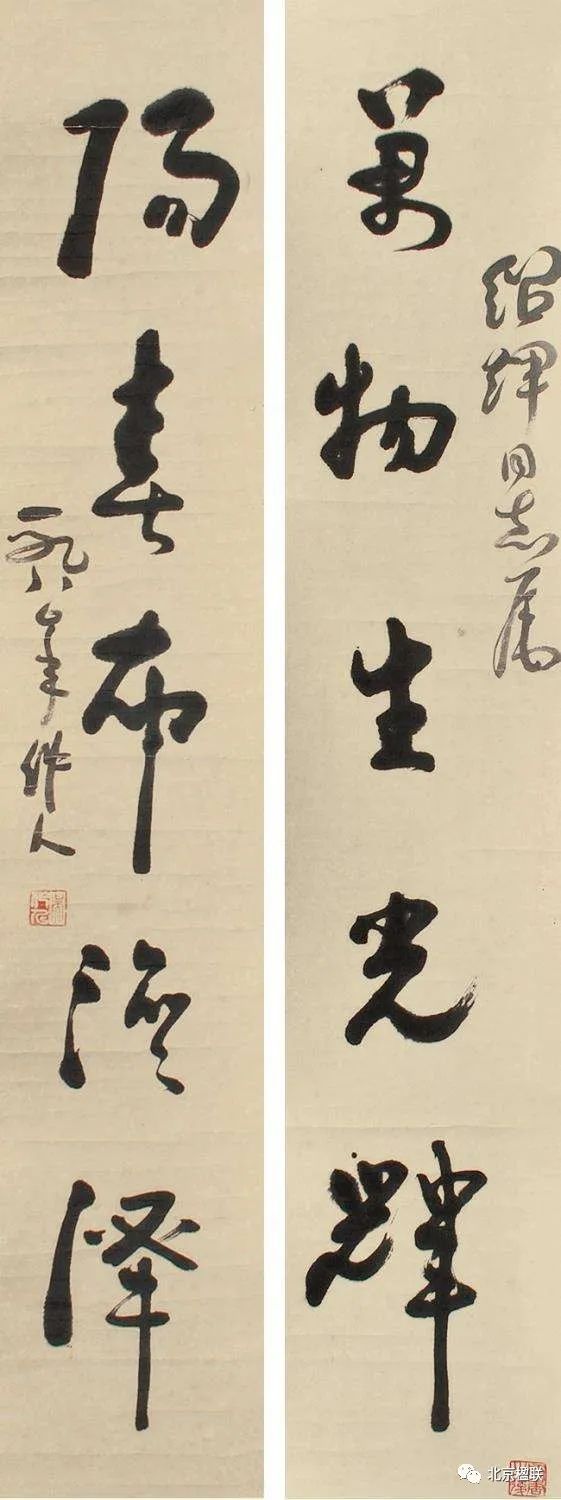 紹輝同志属
萬物生光輝
陽春布德澤
一九八〇年作人
北京楹联